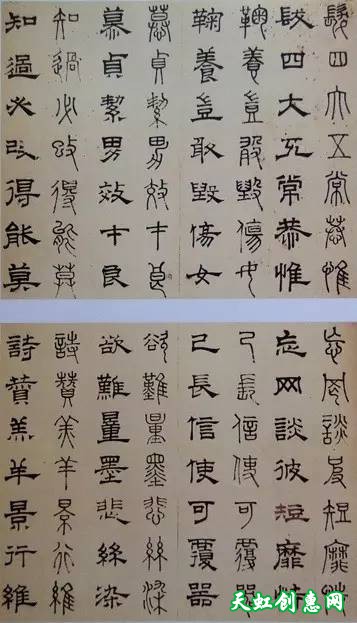 髮四大五常恭惟
髮四大五常恭惟
鞠養豈敢毀傷女
鞠養豈敢毀傷女
慕貞絜男效才良
慕貞絜男效才良
知過必改得能莫
知過必改得能莫
忘罔談彼短靡恃
忘网談彼短靡恃
己長信使可覆器
己長信使可覆器
欲難量墨悲絲染
欲難量墨悲絲染
詩贊羔羊景行維
詩贊羔羊景行維
天虹创惠网